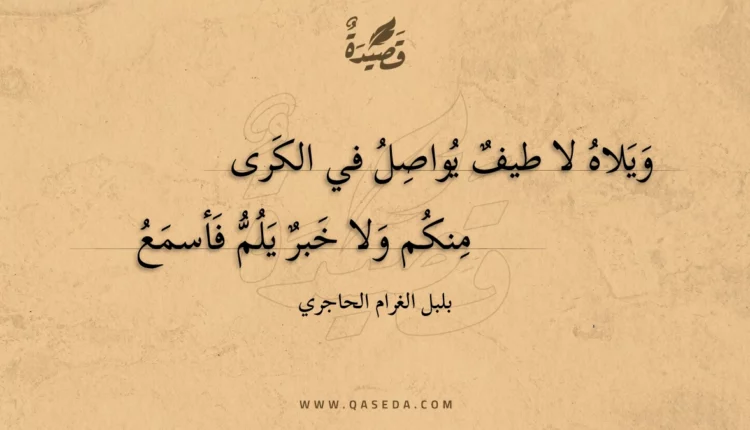 قَصِيْدَةٌ
وَيَلاهُ لا طيفٌ يُواصِلُ في الكَرى
مِنكُم وَلا خَبرٌ يَلُمُّ فَأسمَعُ
بلبل الغرام الحاجري
WWW.QASEDA.COM